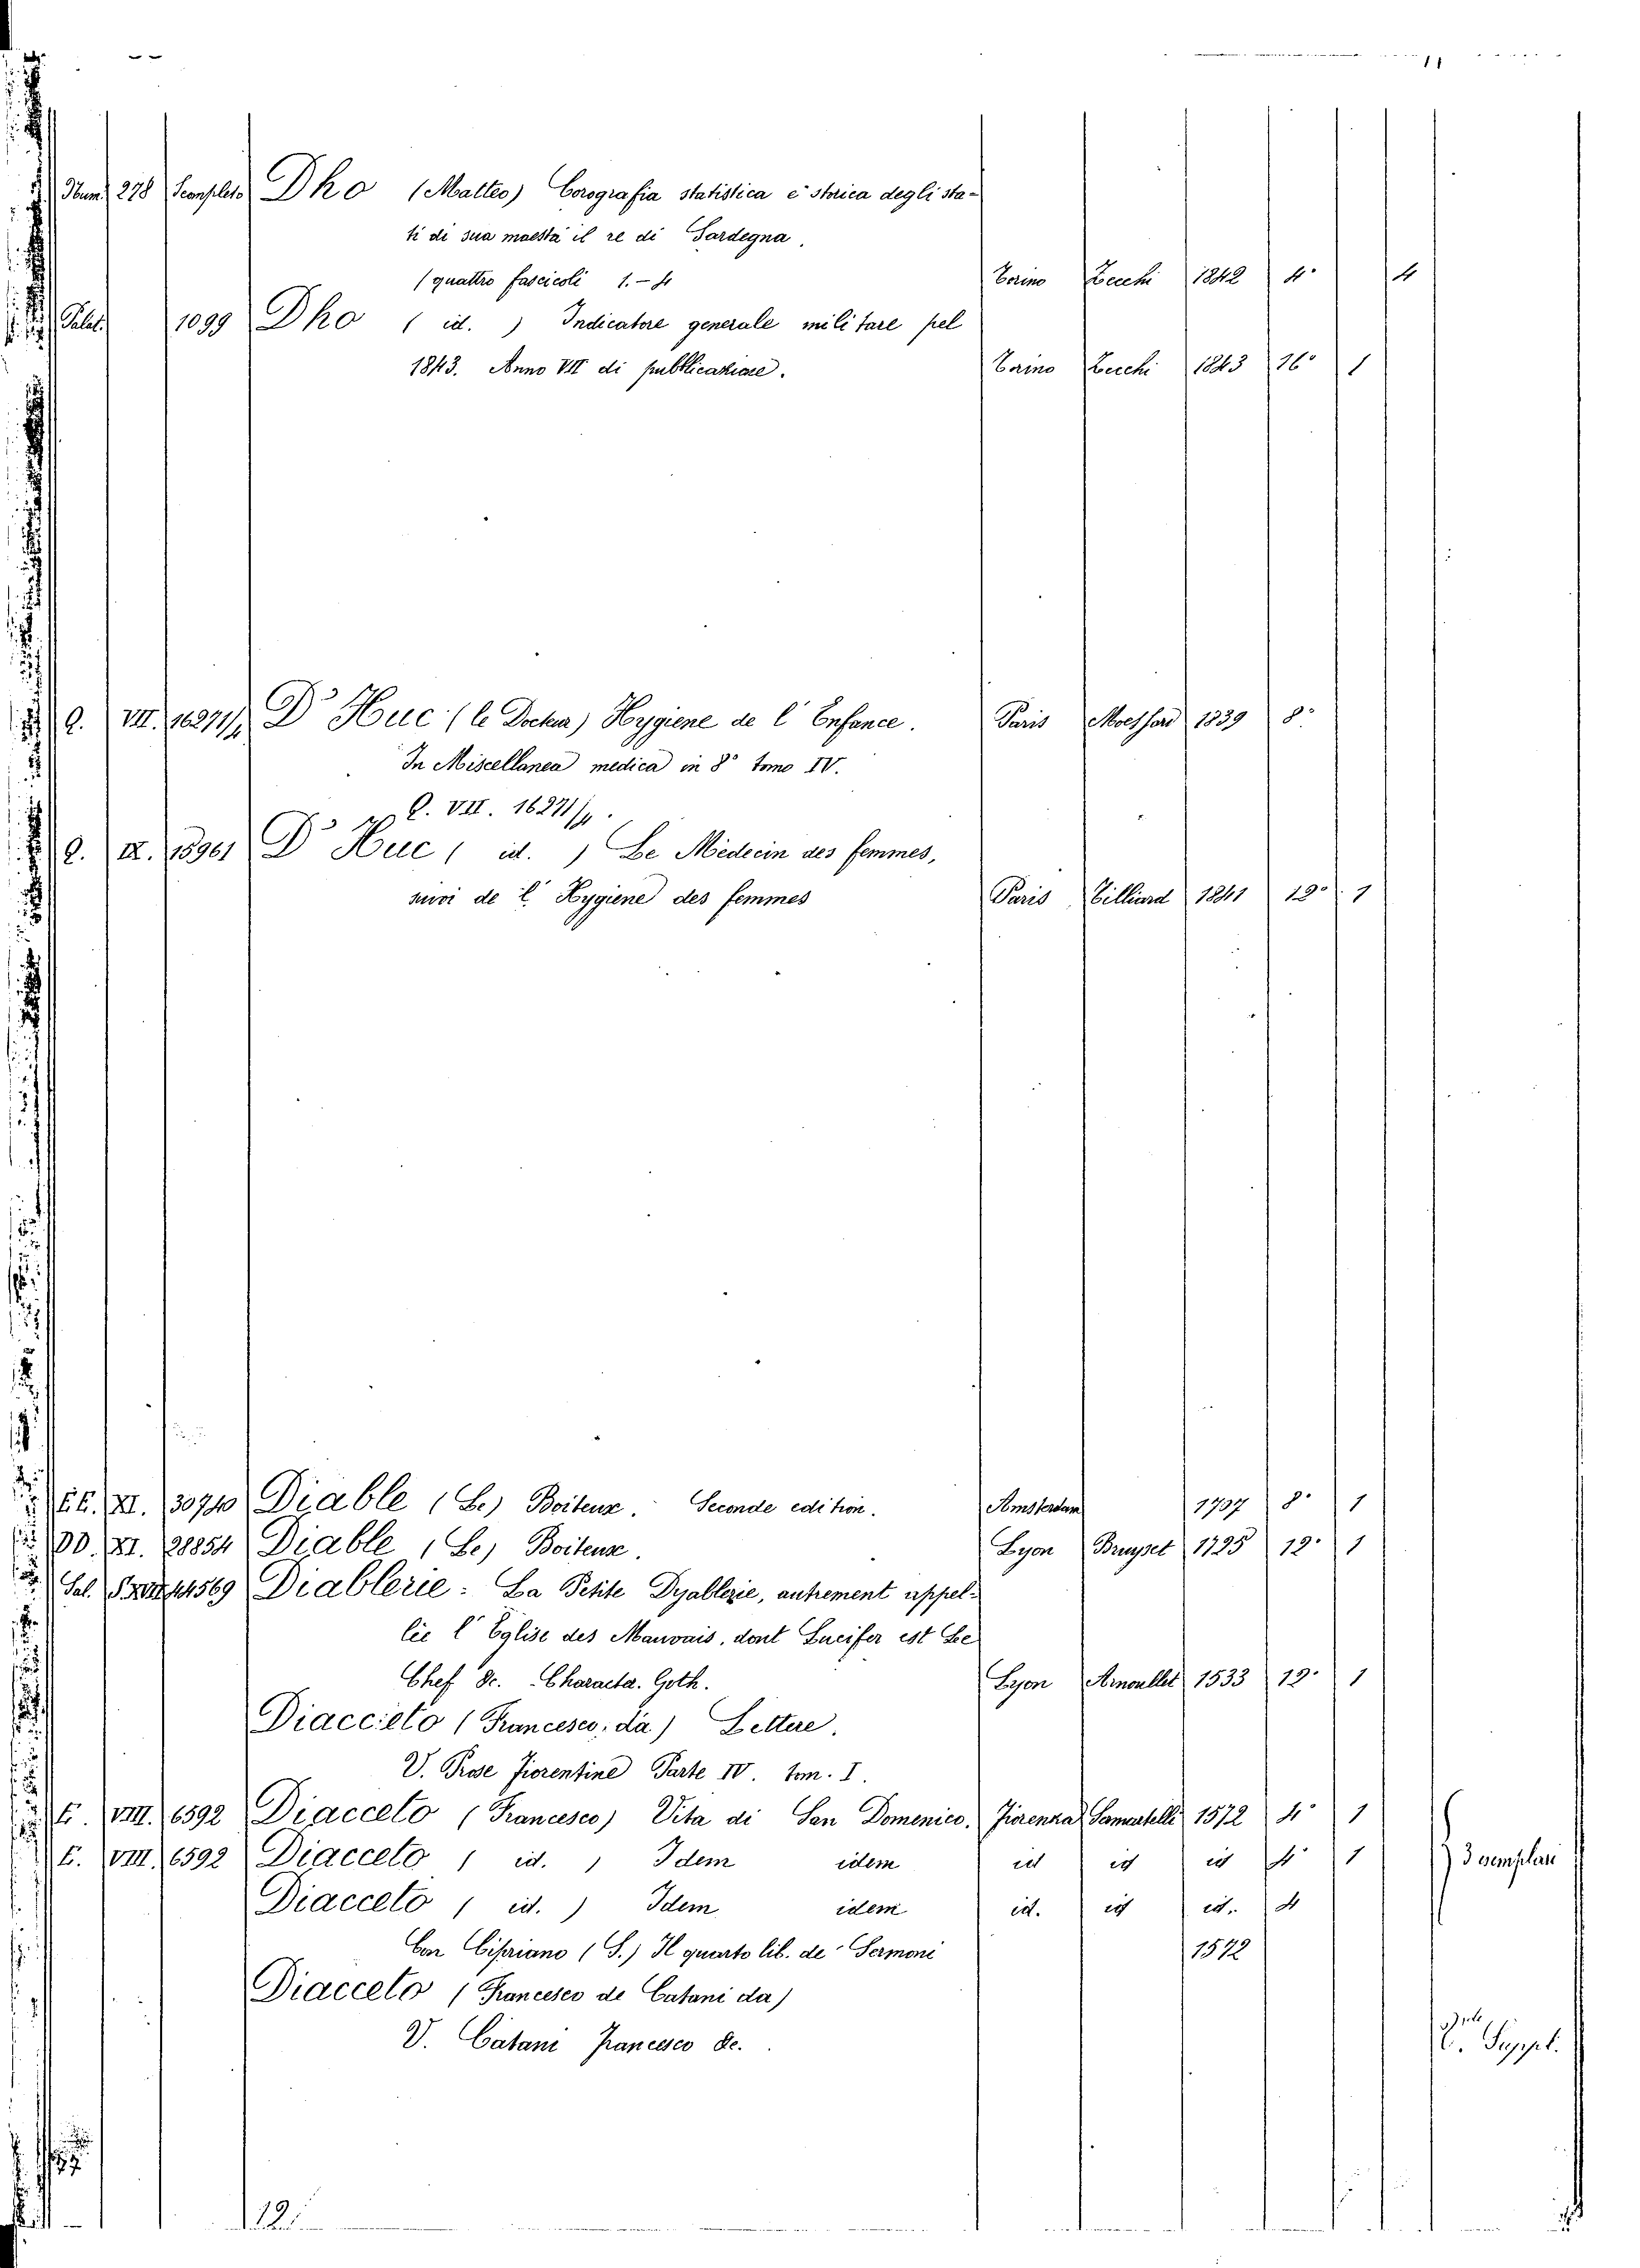 Num. 278 Dho (Matteo) Corografia statistica e storica degli sta-
ti di sua maestà il re di Sardegna.
(quattro fascicoli 1.-4 Torino Zecchi 1842 4° 4
Palat. 1099 Dho ( id. ) Indicatore generale militare pel
1843. Anno VII di pubblicazione. Torino Zecchi 1843 16° 1
Q. VII. 16271/4 D' Huc (le Docteur) Hygiene de l' Enfance. Paris Moessard 1839 8°
In Miscellanea medica in 8° tomo IV.
Q. VII. 16271/4.
Q. II. 15961 D' Huc ( id. ) Le Médecin des femmes,
suivi de l' Hygiene des femmes Paris 1841 12° 1
EE. XI. 30740 Diable (Le) Boiteux. Seconde edition. Amsterdam 1707 8° 1
DD. XI. 28854 Diable (Le) Boiteux. Lyon Bruyset 1725 12° 1
Sal. 44569 Diablerie: La Petite Dyablerie, autrement appel-
lée l' Eglise des Mauvais, dont Lucifer est Le
Chef &c. Characta. Goth. Lyon Arnoullet 1533 12° 1
Diaccieto (Francesco, da) Lettere.
V. Prose Fiorentine Parte IV. tom. I.
E. VIII. 6592 Diacceto (Francesco) Vita di San Domenico. Fiorenza Sermartelli 1572 4° 1
E. VIII. 6592 Diacceto ( id. ) Idem idem id id id 4° 1 3 esemplari
Diacceto ( id. ) Idem idem id. id id. 4
Con Cipriano (S.) Il quarto lib. de' Sermoni 1572
Diacceto (Francesco de Catani da)
V. Catani Francesco &c.
Suppl.
12.